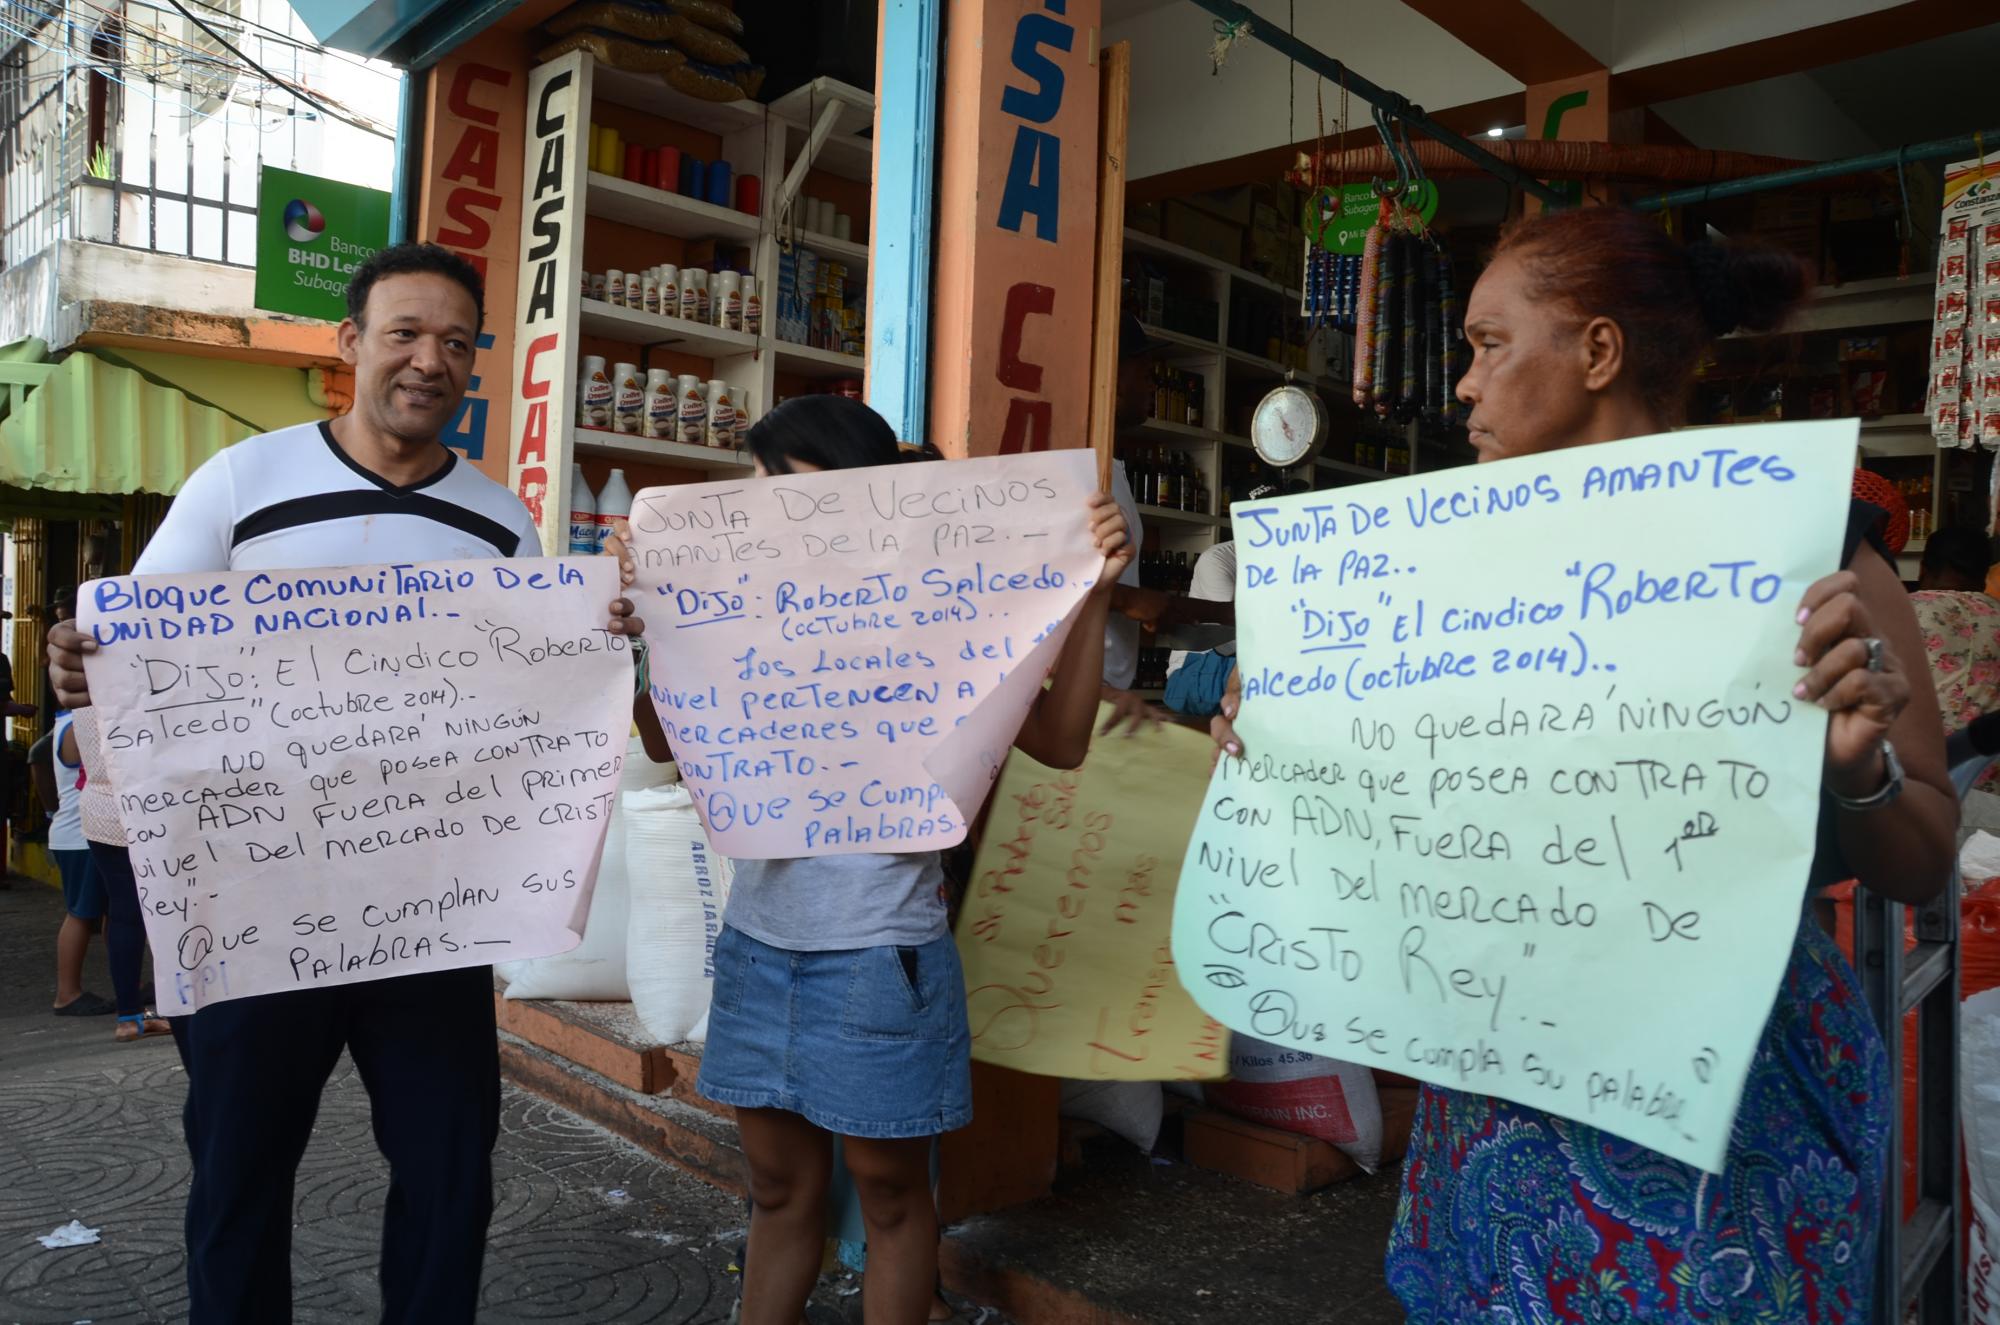 CASA
CASA CAR
SA
CA
Banco
BHD León
Subage
Banco
Subagen
Mi Ba
Constanza
Coffee Creamer
Bloque Comunitario De la
Unidad Nacional.-
"Dijo": El Cindico "Roberto
Salcedo" (octubre 2014)..
No quedará ningún
mercader que posea contrato
con ADN fuera del primer
nivel Del mercado De Cristo
Rey".-
Que se cumplan sus
Palabras.-
Junta De Vecinos
Amantes De la Paz.-
"Dijo": Roberto Salcedo.-
(octubre 2014)..
Los Locales del 1er
nivel pertencen a
mercaderes que
contrato.-
"Que se Cump
Palabras.
Sr. Roberto
Salc
Queremos
mas
Transp
Junta De Vecinos Amantes
De la Paz..
"Dijo" El Cindico "Roberto
Salcedo (octubre 2014)..
No quedará ningún
mercader que posea contrato
con ADN, fuera del 1er
nivel Del mercado De
"Cristo Rey".-
"Que se cumpla su palabra"
ARROZ JARAGUA
/ Kilos 45.36
GRAIN INC.